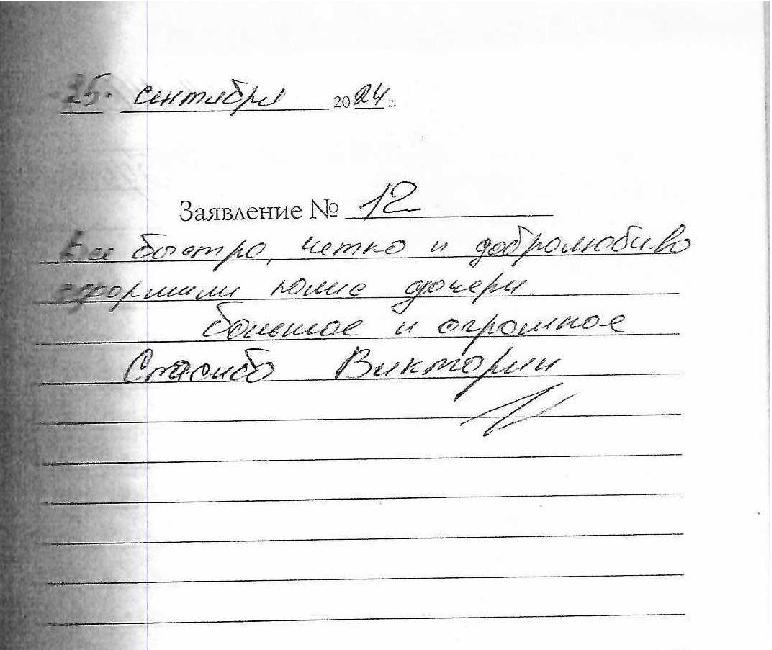 25. сентября 2024 г.
Заявление № 12
Все быстро, четко и добролюбиво
оформили полис дочери
большое и огромное
Спасибо Виктории